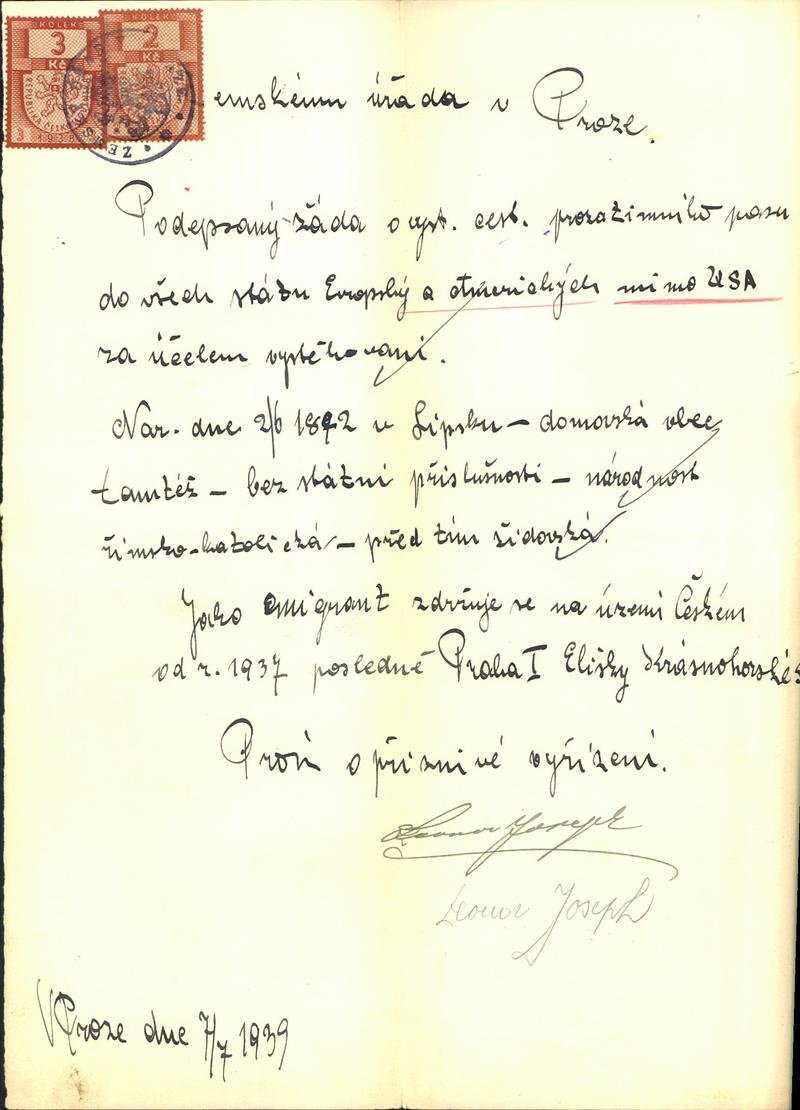 KOLEK KOLEK
3 Kč 2 Kč
emskému úřadu v Praze.
Podepsaný žádá o vyst. cest. prozatimniho pasu
do všech státu Evropský a Amerických mimo USA
za účelem vystěhovani.
Nar. dne 2/6 1892 v Lipsku – domovská obec
tamtéž – bez státní příslušnosti – národnost
římsko-katolická – před tím židovská.
Jako emigrant zdržuje se na území Českém
od r. 1937 posledně Praha I Elišky Krásnohorské
Prosí o příznivé vyřízení.
Leonor Joseph
Leonor Joseph
V Praze dne 7/7 1939